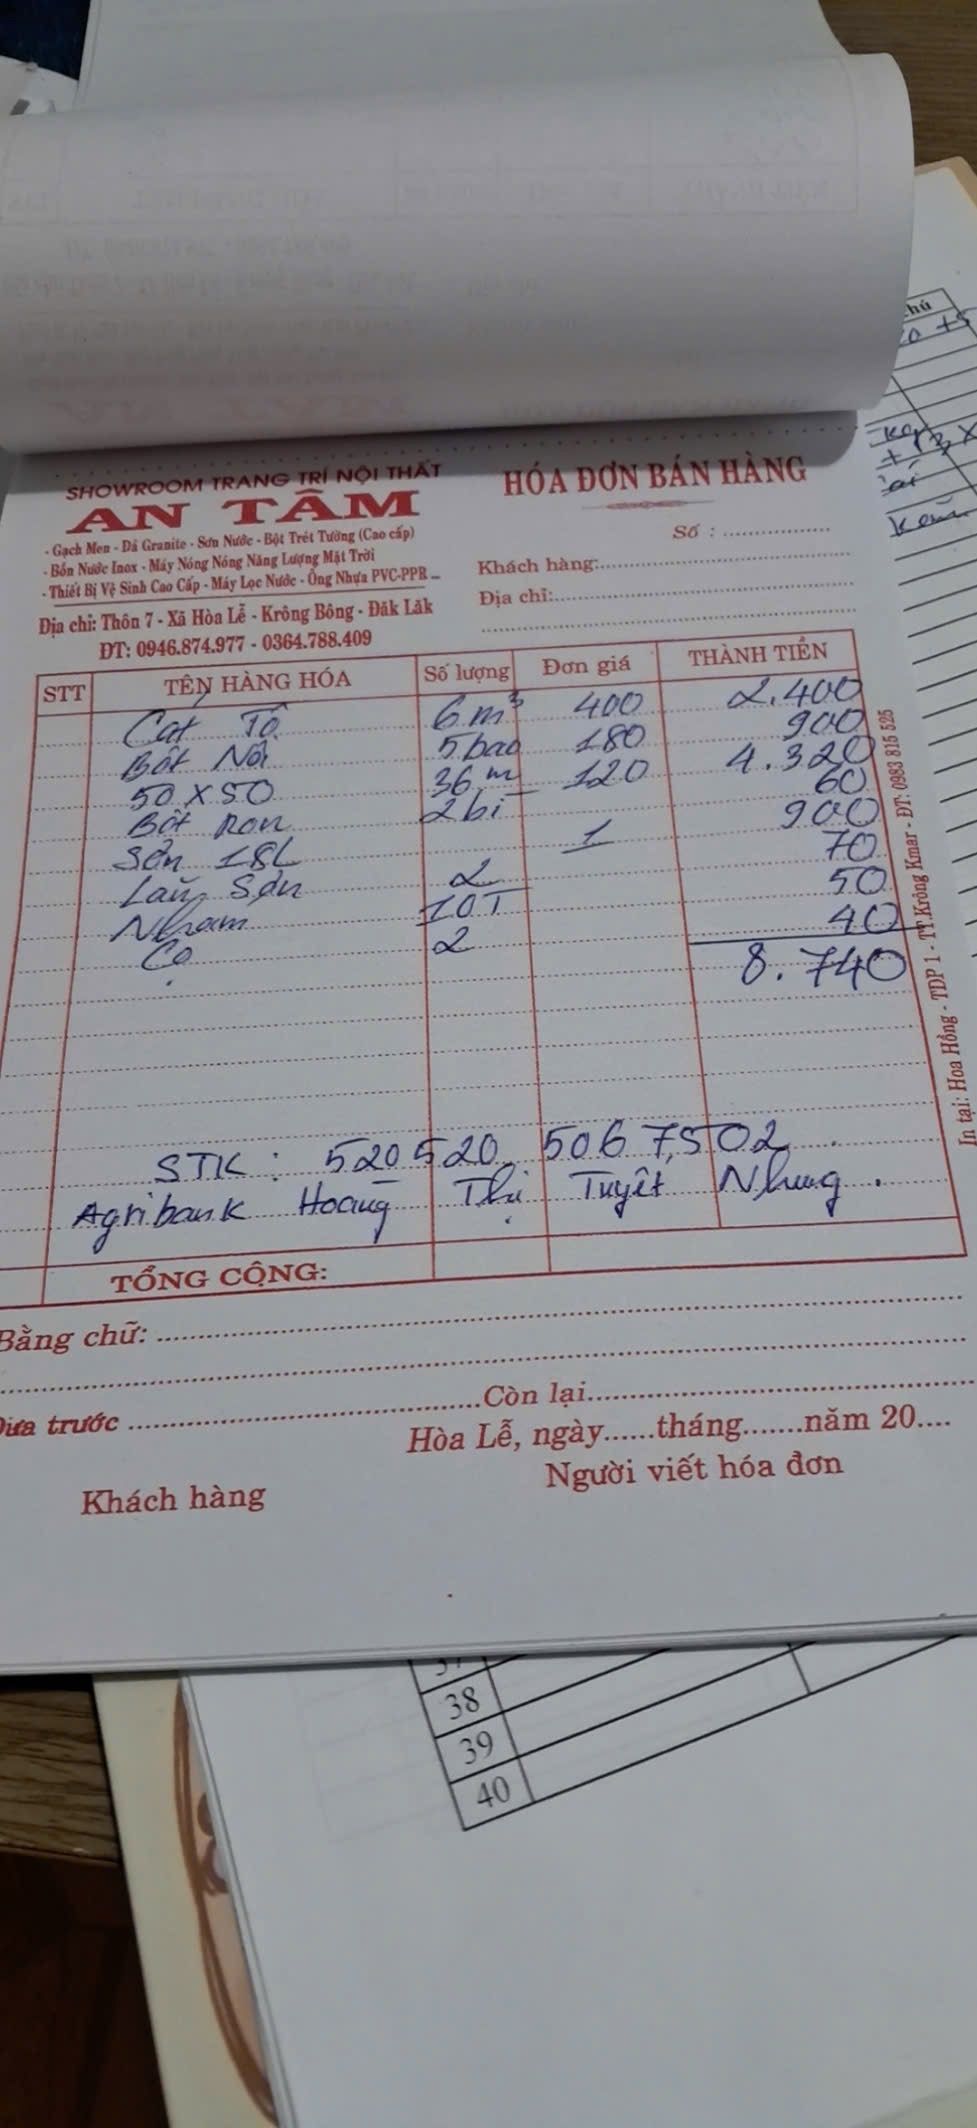 SHOWROOM TRANG TRÍ NỘI THẤT
AN TÂM
- Gạch Men - Đá Granite - Sơn Nước - Bột Trét Tường (Cao cấp)
- Bồn Nước Inox - Máy Nóng Nóng Năng Lượng Mặt Trời
- Thiết Bị Vệ Sinh Cao Cấp - Máy Lọc Nước - Ống Nhựa PVC-PPR ...
Địa chỉ: Thôn 7 - Xã Hòa Lễ - Krông Bông - Đăk Lăk
ĐT: 0946.874.977 - 0364.788.409
HÓA ĐƠN BÁN HÀNG
Số :
Khách hàng:
Địa chỉ:
STT TÊN HÀNG HÓA Số lượng Đơn giá THÀNH TIỀN
Cát Tô 6m³ 400 2.400
Bột Nội 5bao 180 900
50 x 50 36m 120 4.320
Bột Ron 2bị 60
Sơn 18L 1 900
Lăn Sơn 2 70
Nham 10T 50
Cọ 2 40
8.740
STK: 520520 5067,502
Agribank Hoang Thị Tuyết Nhung.
TỔNG CỘNG:
Bằng chữ:
Đưa trước Còn lại
Hòa Lễ, ngày......tháng.......năm 20....
Khách hàng Người viết hóa đơn
In tại: Hoa Hồng - TDP 1 - TT.Krông Kmar - ĐT: 0983 815 525
hú
+5
kg
38
39
40